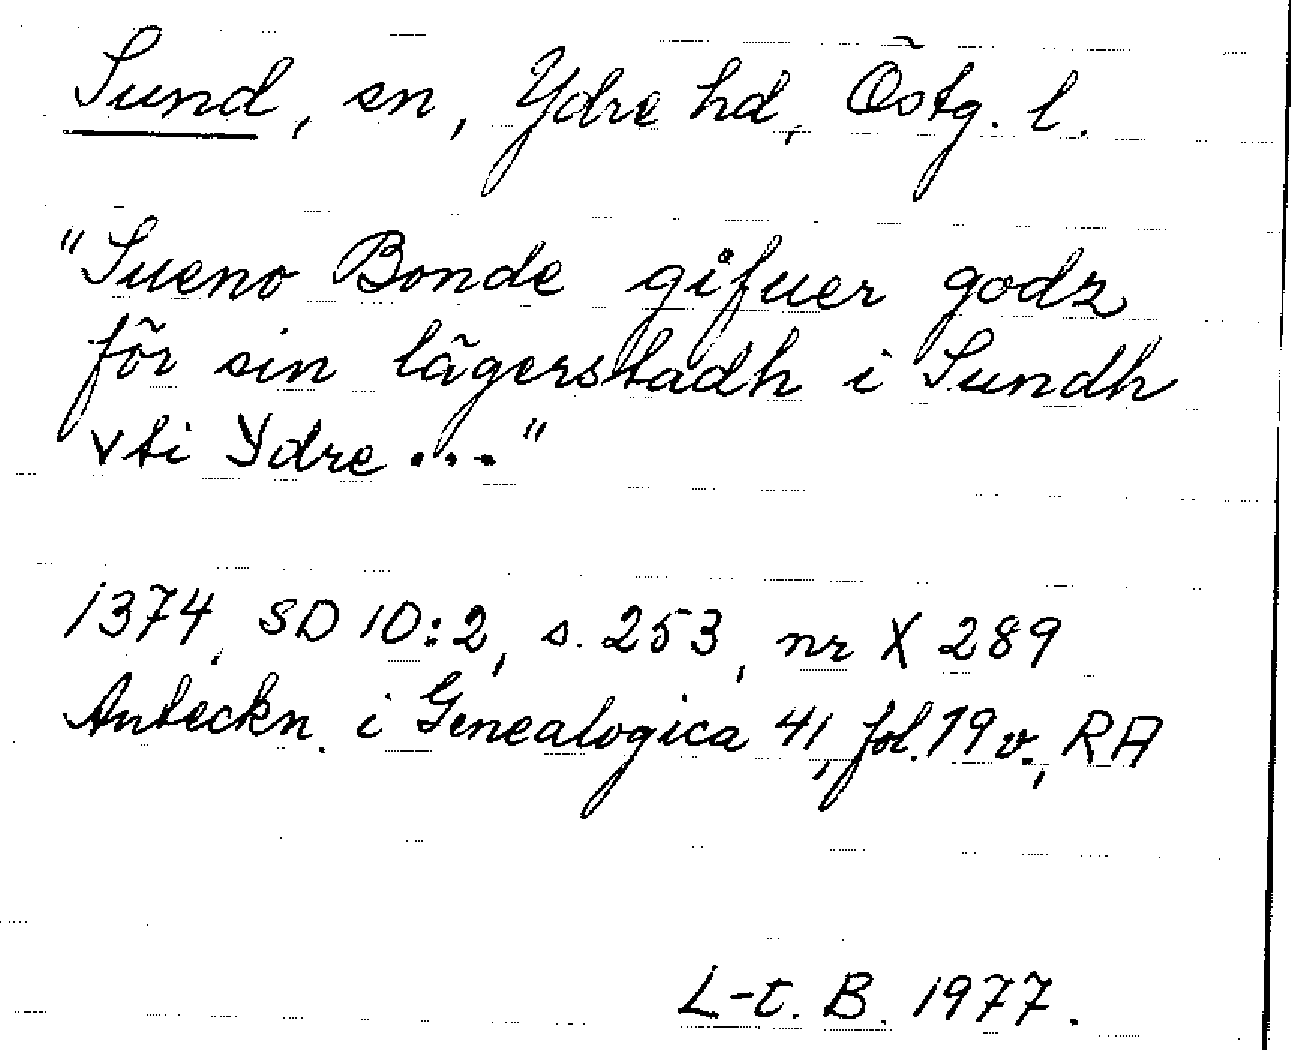 Sund, sn, Ydre hd, Östg. l.
"Sueno Bonde gifuer godz
för sin lägerstadh i Sundh
vti Ydre..."
1374, SD 10:2, s. 253, nr X 289
Anteckn. i Genealogica 41, fol. 19 v., RA
L-t. B. 1977.